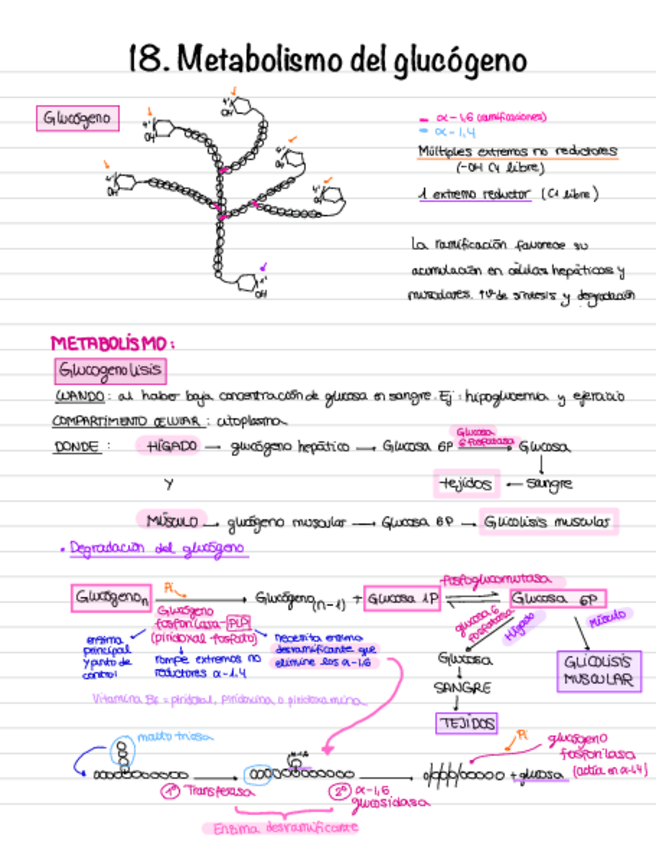 18. Metabolismo del glucógeno
Glucógeno
4'
OH
4'
OH
4'
OH
4'
OH
4'
OH
1'
OH
α-1,6 (ramificaciones)
α-1,4
Múltiples extremos no reductores
(-OH C4 libre)
1 extremo reductor (C1 libre)
La ramificación favorece su
acumulación en células hepáticas y
musculares. ↑V de síntesis y degradación
METABOLISMO:
Glucogenolisis
CUANDO: al haber baja concentración de glucosa en sangre. Ej: hipoglucemia y ejercicio
COMPARTIMENTO CELULAR: citoplasma
DONDE: HÍGADO → glucógeno hepático → Glucosa 6P → Glucosa
Glucosa
6 fosfatasa
Y
tejidos ← sangre
MÚSCULO → glucógeno muscular → Glucosa 6P → Glicolisis muscular
• Degradación del glucógeno
Glucógeno n → Glucógeno (n-1) + Glucosa 1P ⇌ Glucosa 6P
Pi
fosfoglucomutasa
Glucógeno
fosforilasa-PLP
(piridoxal fosfato)
enzima
principal
y punto de
control
rompe extremos no
reductores α-1,4
necesita enzima
desramificante que
elimine los α-1,6
glucosa 6
fosfatasa
Hígado
Músculo
Glucosa
SANGRE
TEJIDOS
GLICOLISIS
MUSCULAR
Vitamina B6 = piridoxal, Piridoxina o piridoxamina
maltotriosa
1º Transferasa
2º α-1,6
glucosidasa
Enzima desramificante
Pi
glucógeno
fosforilasa
(actúa en α-1,4)
+ glucosa